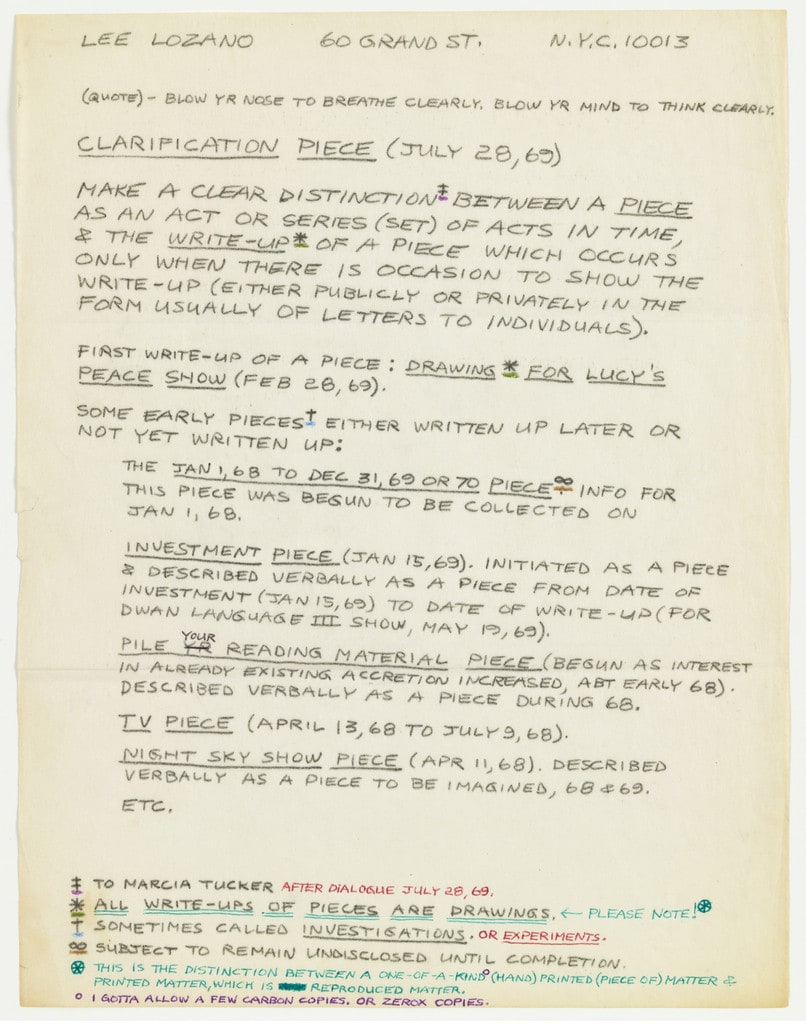 LEE LOZANO 60 GRAND ST. N.Y.C. 10013
(QUOTE) - BLOW YR NOSE TO BREATHE CLEARLY. BLOW YR MIND TO THINK CLEARLY.
CLARIFICATION PIECE (JULY 28, 69)
MAKE A CLEAR DISTINCTION‡ BETWEEN A PIECE
AS AN ACT OR SERIES (SET) OF ACTS IN TIME,
& THE WRITE-UP* OF A PIECE WHICH OCCURS
ONLY WHEN THERE IS OCCASION TO SHOW THE
WRITE-UP (EITHER PUBLICLY OR PRIVATELY IN THE
FORM USUALLY OF LETTERS TO INDIVIDUALS).
FIRST WRITE-UP OF A PIECE: DRAWING* FOR LUCY'S
PEACE SHOW (FEB 28, 69).
SOME EARLY PIECES† EITHER WRITTEN UP LATER OR
NOT YET WRITTEN UP:
THE JAN 1, 68 TO DEC 31, 69 OR 70 PIECE∞ INFO FOR
THIS PIECE WAS BEGUN TO BE COLLECTED ON
JAN 1, 68.
INVESTMENT PIECE (JAN 15, 69). INITIATED AS A PIECE
& DESCRIBED VERBALLY AS A PIECE FROM DATE OF
INVESTMENT (JAN 15, 69) TO DATE OF WRITE-UP (FOR
DWAN LANGUAGE III SHOW, MAY 19, 69).
PILE YR YOUR READING MATERIAL PIECE (BEGUN AS INTEREST
IN ALREADY EXISTING ACCRETION INCREASED, ABT EARLY 68).
DESCRIBED VERBALLY AS A PIECE DURING 68.
TV PIECE (APRIL 13, 68 TO JULY 9, 68).
NIGHT SKY SHOW PIECE (APR 11, 68). DESCRIBED
VERBALLY AS A PIECE TO BE IMAGINED, 68 & 69.
ETC.
‡ TO MARCIA TUCKER AFTER DIALOGUE JULY 28, 69.
* ALL WRITE-UPS OF PIECES ARE DRAWINGS. ← PLEASE NOTE!⊛
† SOMETIMES CALLED INVESTIGATIONS. OR EXPERIMENTS.
∞ SUBJECT TO REMAIN UNDISCLOSED UNTIL COMPLETION.
⊛ THIS IS THE DISTINCTION BETWEEN A ONE-OF-A-KIND° (HAND) PRINTED (PIECE OF) MATTER &
PRINTED MATTER, WHICH IS REPRODUCED MATTER.
° I GOTTA ALLOW A FEW CARBON COPIES. OR ZEROX COPIES.